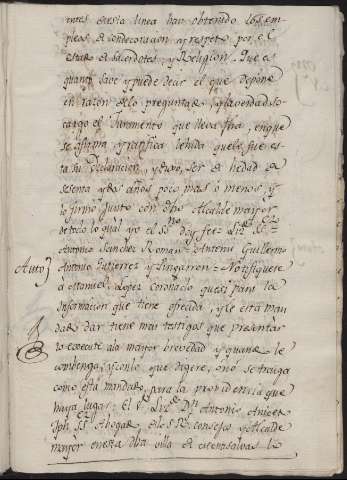 entes en esta linea han obtenido los em
pleos de condecoracion a respeto por el
estado de Sacerdotes, y Religion. Que es
quanto save y puede decir el que depone
en razon de lo preguntado y la verdad so
cargo el Juramento que lleva fho, en que
se afirma, y ratifica lehida que le fue es
ta su declaracion, y dixo, ser de hedad de
sesenta y dos años poco mas ò menos, y
lo firmo junto con dho Alcalde maior
de todo lo qual yo el SSno doy fee =
Antonio Sanchez Roman = Antemi Guillermo
Antonio Gutierrez y Lingarron =
Auto} Notifiquese
a Manuel Lopez Coronado que si para la
Informacion que tiene ofrecida, y le esta man
dada dar tiene mas testigos que presentar
lo execute a la mayor brevedad y quando le
combenga, y con lo que dixere, ò no se traiga
como esta mandado, para la providencia que
haya lugar: El Sr Lizdo Dn Antonio
Abogado de los Rs consejos y Alcalde
mayor en esta dha villa de